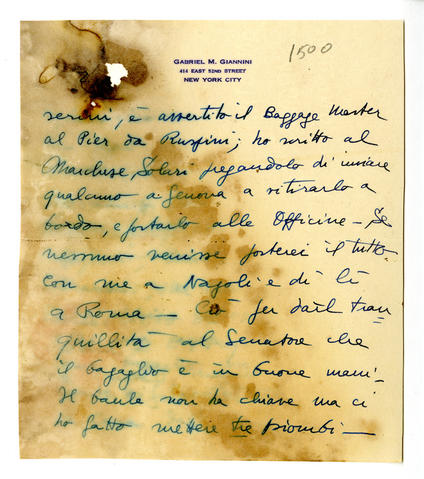 GABRIEL M. GIANNINI
414 EAST 52ND STREET
NEW YORK CITY
1500
è avvertito il Baggage Master
al Pier da Ruspini; ho scritto al
Marchese Solari pregandolo di inviare
qualcuno a Genova a ritirarlo a
bordo, e portarlo alle Officine - Se
nessuno venisse porterei il tutto
con me a Napoli e di lì
a Roma - Ciò per darL tran
quillità al Senatore che
il bagaglio è in buone mani -
Il baule non ha chiave ma ci
ho fatto mettere tre piombi -